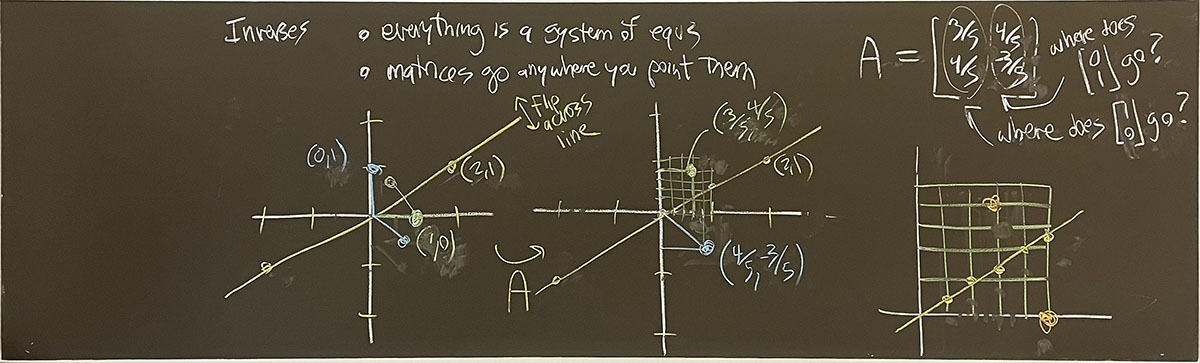 Inverses
• everything is a system of eqns
• matrices go anywhere you point them
A = [3/5 4/5
4/5 -3/5]
where does
[0
1] go?
where does [1
0] go?
flip
across
line
(0,1)
(2,1)
(1,0)
A
(3/5, 4/5)
(2,1)
(4/5, -3/5)